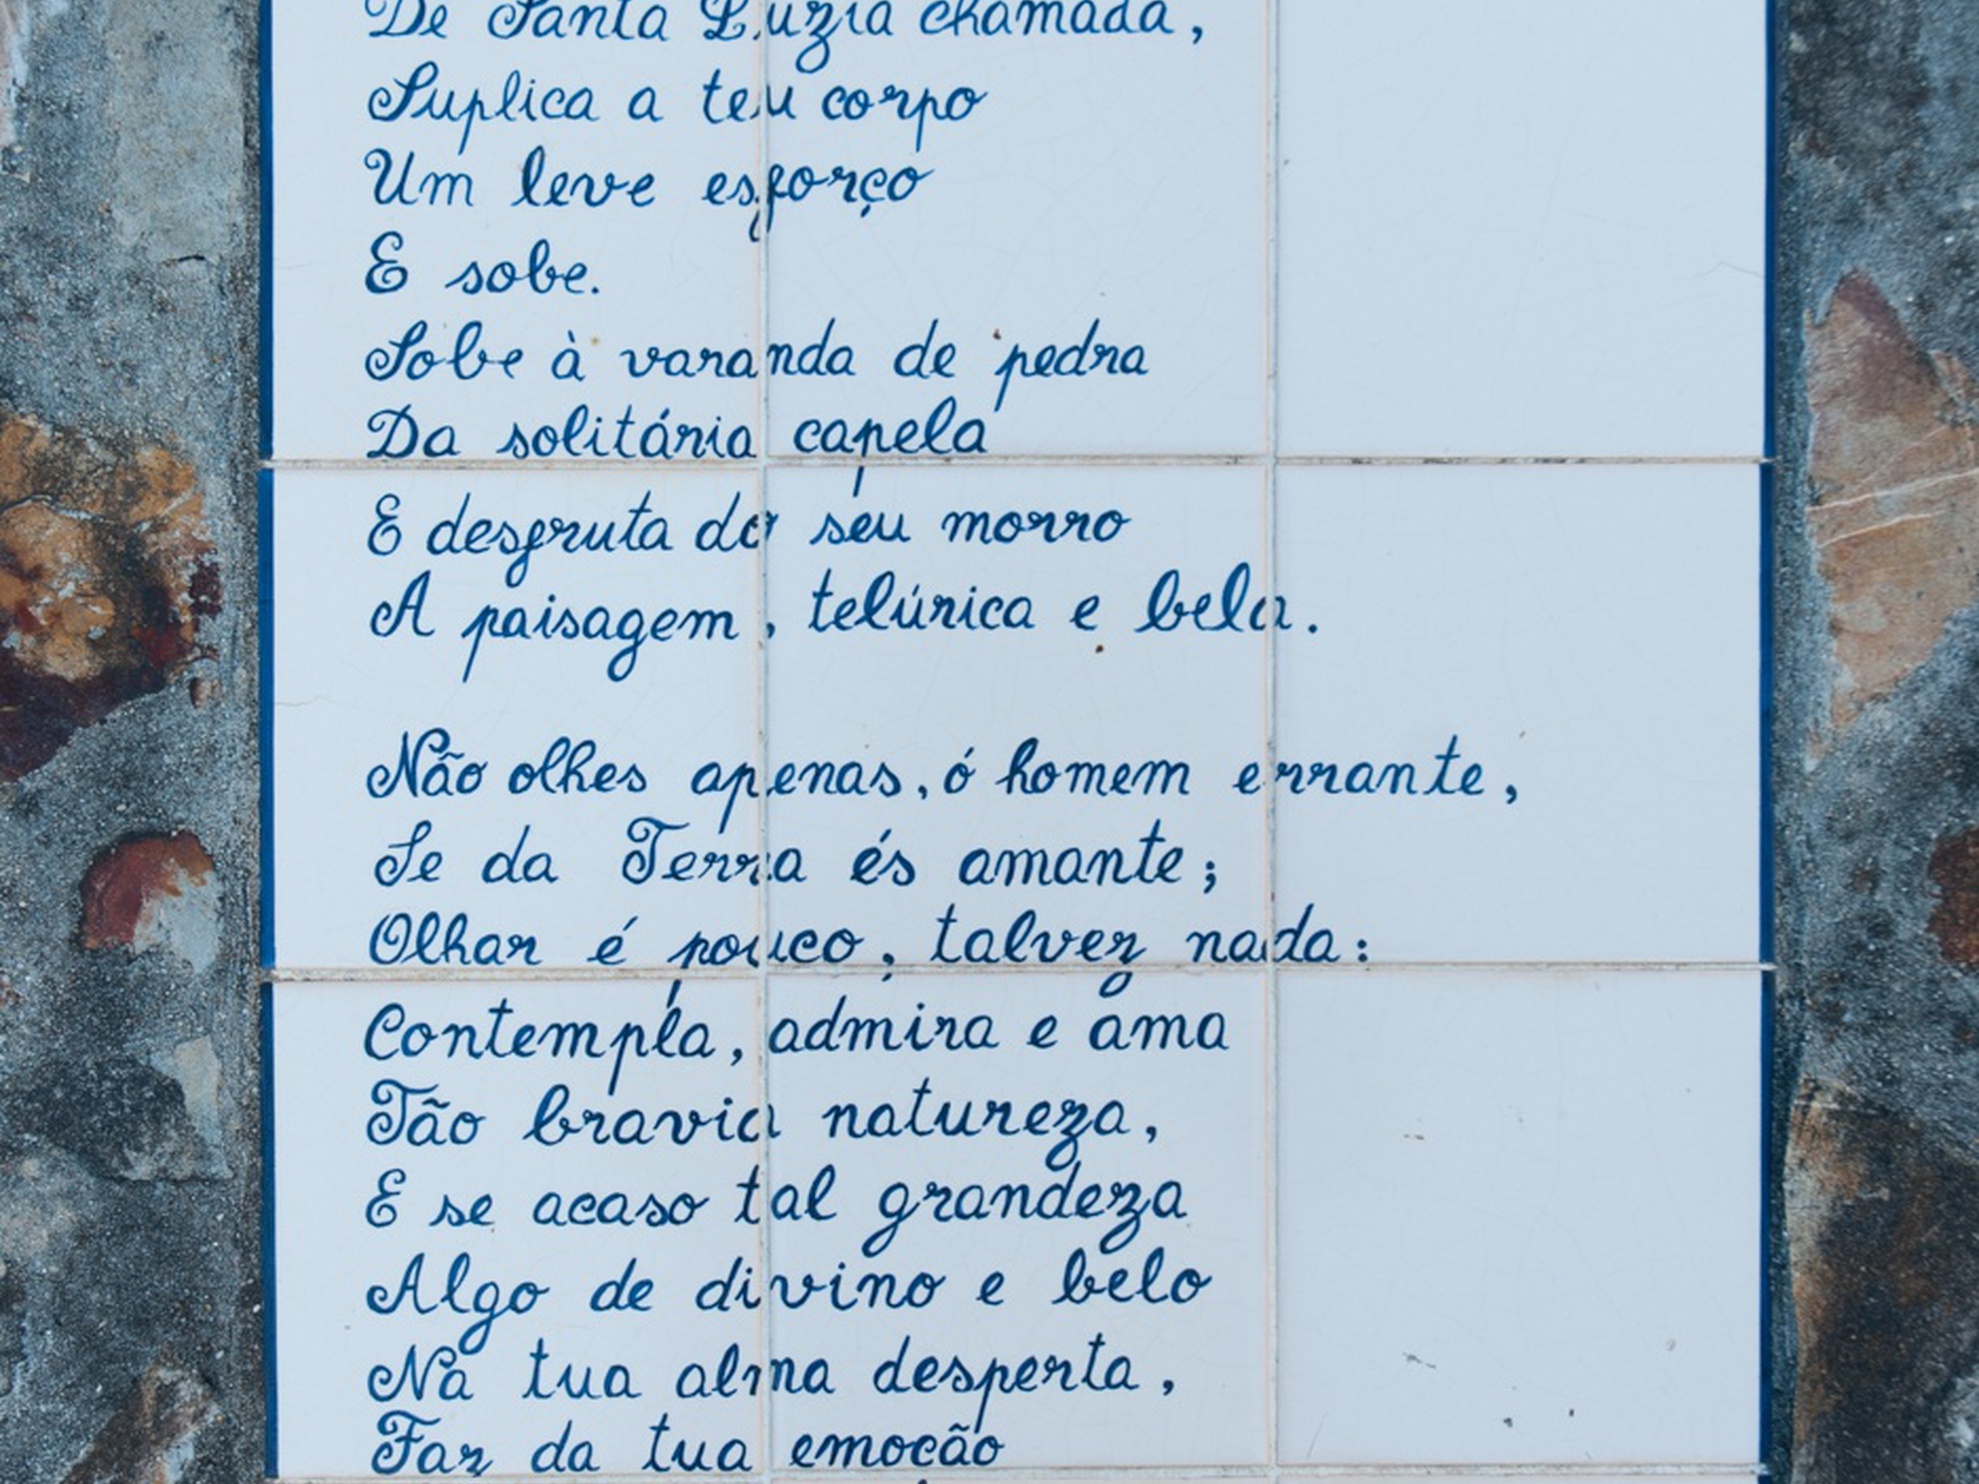 De Santa Luzia chamada,
Suplica a teu corpo
Um leve esforço
E sobe.
Sobe à varanda de pedra
Da solitária capela
E desfruta do seu morro
A paisagem, telúrica e bela.
Não olhes apenas, ó homem errante,
Se da Terra és amante;
Olhar é pouco, talvez nada:
Contempla, admira e ama
Tão bravia natureza,
E se acaso tal grandeza
Algo de divino e belo
Na tua alma desperta,
Faz da tua emoção